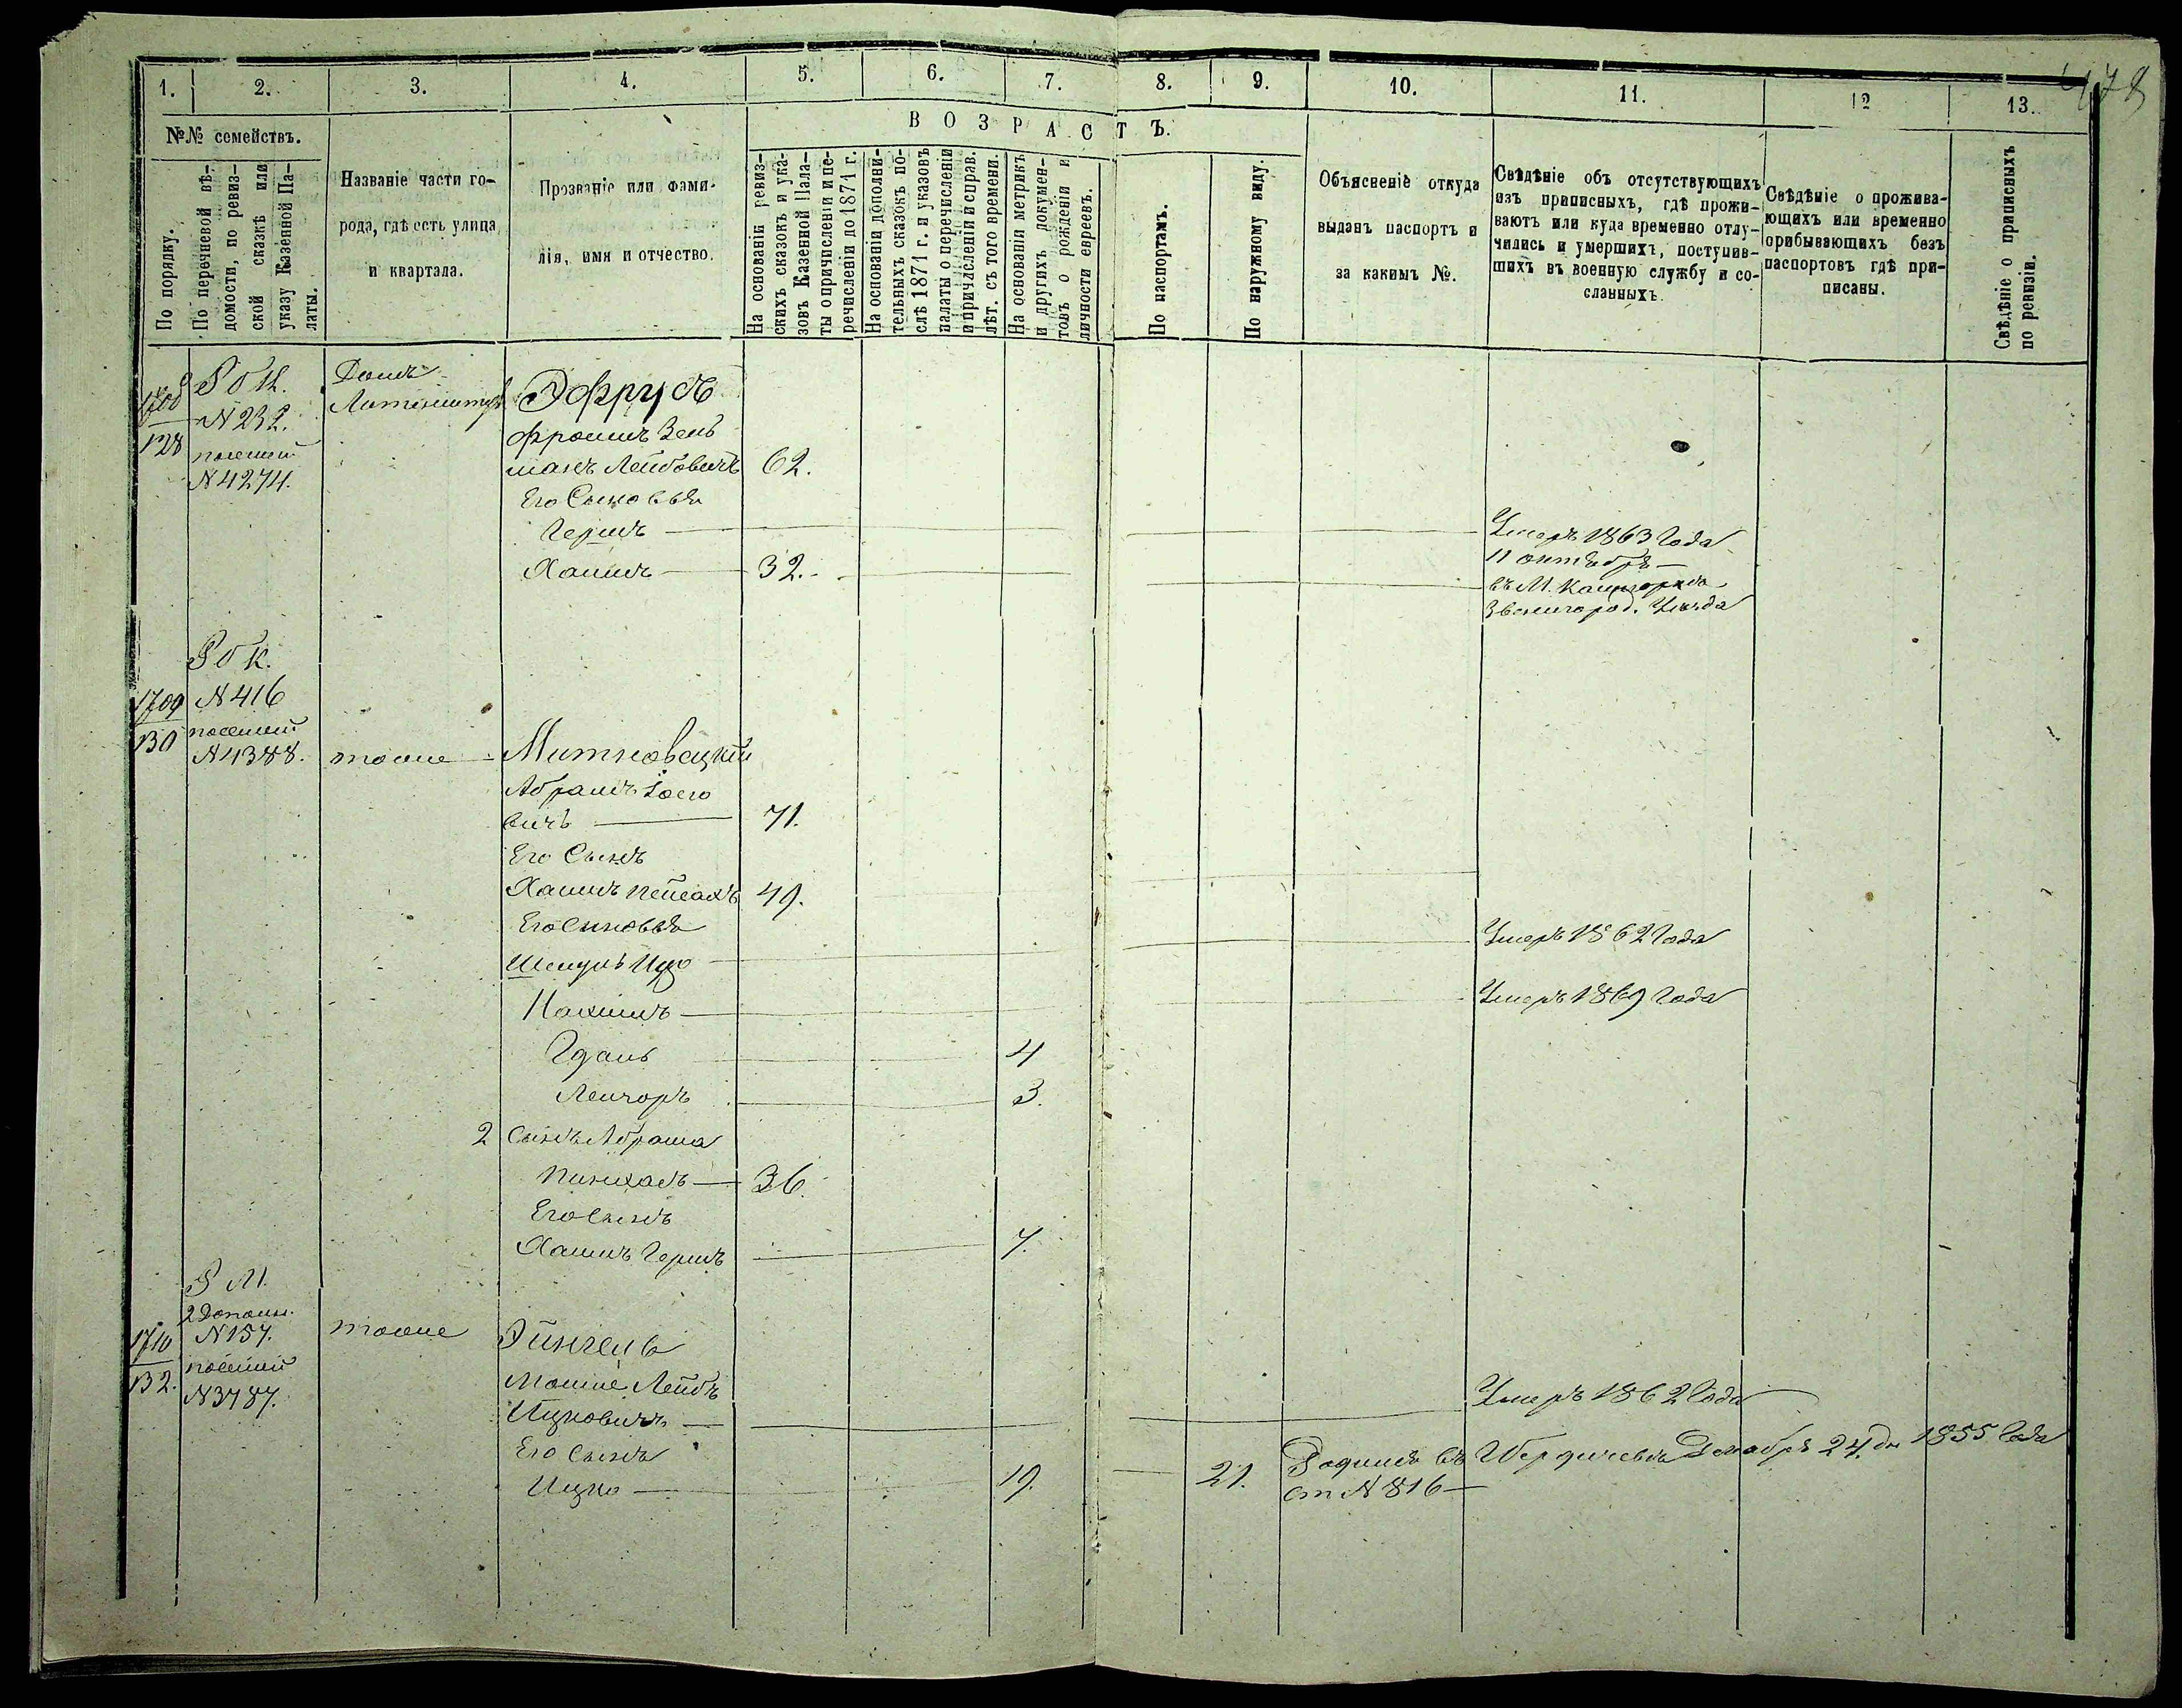 478
1. 2. 3. 4. 5. 6. 7. 8. 9. 10. 11. 12 13.
№№ семействъ.
ВОЗРАСТЪ.
По порядку.
По перечневой вѣ-
домости, по ревиз-
ской сказкѣ или
указу Казенной Па-
латы.
Названіе части го-
рода, гдѣ есть улица
и квартала.
Прозваніе или фами-
лія, имя и отчество.
На основаніи ревиз-
скихъ сказокъ и ука-
зовъ Казенной Пала-
ты о причисленіи и пе-
речисленіи до 1871 г.
На основаніи дополни-
тельныхъ сказокъ по-
слѣ 1871 г. и указовъ
палаты о перечисленіи
и причисленіи и справ.
лѣт. съ того времени.
На основаніи метрикъ
и другихъ докумен-
товъ о рожденіи и
личности евреевъ.
По паспортамъ.
По наружному виду.
Объясненіе откуда
выданъ паспортъ и
за какимъ №.
Свѣдѣніе объ отсутствующихъ
изъ приписныхъ, гдѣ прожи-
ваютъ или куда временно отлу-
чились и умершихъ, поступив-
шихъ въ военную службу и со-
сланныхъ.
Свѣдѣніе о прожива-
ющихъ или временно
прибывающихъ безъ
паспортовъ гдѣ при-
писаны.
Свѣдѣніе о приписныхъ
по ревизіи.
1708
128
N 232.
посемей
N 4274.
Домъ
Эфрусъ
Фроимъ Зель
манъ Лейбовичъ 62.
Его Сыновья
Гершъ
Умеръ 1863 Года
11 октября
Хаимъ 32.
въ М.
Звенигород. Уезда
1709
130
N 416
посемей
N 4388.
тоже
Митновецкій
Абрамъ Іосіо
вичъ 71.
Его Сынъ
Хаимъ Пейсахъ 49.
Его Сыновья
Шендиь Ицко
Умеръ 1862 Года
Нахимъ
Умеръ 1869 Года
Гдаль 4
Лейзоръ 3.
2 Сынъ Абрама
Пинхасъ 36.
Его Сынъ
Хаимъ Гершъ 7.
1710
132.
2 Дополн.
N 157.
посемей
N 3787.
тоже
Эйнгель
Мошке Лейбъ
Ицковичъ
Умеръ 1862 Года
Его Сынъ
Ицко 19. 21.
Родился въ Бердичевѣ Декабря 24. дн 1855 Года
N 816